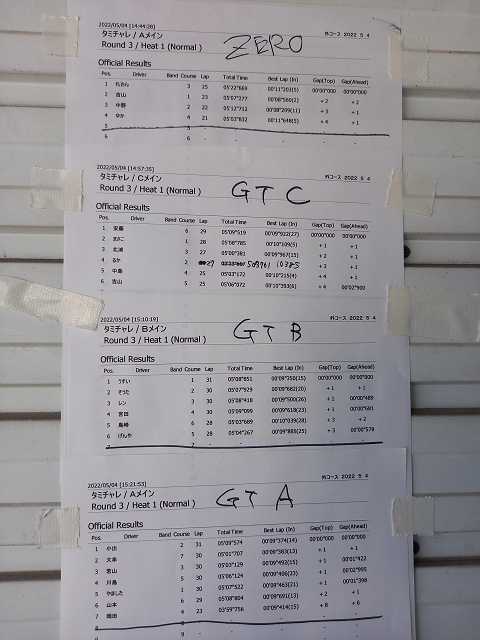 2022/05/04 [14:44:28] Rコース 2022 5 4
タミチャレ / Aメイン
Round 3 / Heat 1 (Normal ) ZERO
Official Results
Pos. Driver Band Course Lap Total Time Best Lap (In) Gap(Top) Gap(Ahead)
1 3 25 05'22"669 00'11"203(5) 00'00"000 00'00"000
2 吉山 1 23 05'07"277 00'08"560(2) + 2 + 2
3 中野 2 22 05'12"712 + 3 + 1
4 ゆか 4 21 05'03"832 00'11"648(5) + 4 + 1
5 5 -
6 6 -
2022/05/04 [14:57:35] Rコース 2022 5 4
タミチャレ / Cメイン
Round 3 / Heat 1 (Normal ) GT C
Official Results
Pos. Driver Band Course Lap Total Time Best Lap (In) Gap(Top) Gap(Ahead)
1 安藤 6 29 05'09"519 00'09"922(27) 00'00"000 00'00"000
2 まさこ 1 28 05'08"785 00'10"109(5) + 1 + 1
3 北浦 3 27 05'00"381 00'09"967(15) + 2 + 1
4 るか 2 27
5 中島 4 25 05'03"172 00'10"215(4) + 4 + 1
6 吉山 5 25 05'06"072 00'10"393(6) + 4 00'02"900
2022/05/04 [15:10:19] Rコース 2022 5 4
タミチャレ / Bメイン
Round 3 / Heat 1 (Normal ) GT B
Official Results
Pos. Driver Band Course Lap Total Time Best Lap (In) Gap(Top) Gap(Ahead)
1 うすい 1 31 05'08"651 00'09"250(15) 00'00"000 00'00"000
2 そうた 2 30 05'07"929 00'09"682(20) + 1 + 1
3 レン 3 30 05'08"418 00'09"500(26) + 1 00'00"489
4 宮田 4 30 05'09"099 00'09"618(23) + 1 00'00"681
5 島崎 6 28 05'03"689 00'10"039(28) + 3 + 2
6 げんや 5 28 05'04"267 00'09"885(25) + 3 00'00"578
2022/05/04 [15:21:53] Rコース 2022 5 4
タミチャレ / Aメイン
Round 3 / Heat 1 (Normal ) GT A
Official Results
Pos. Driver Band Course Lap Total Time Best Lap (In) Gap(Top) Gap(Ahead)
1 小田 2 31 05'09"574 00'09"374(14) 00'00"000 00'00"000
2 大本 7 30 05'01"707 00'09"383(13) + 1 + 1
3 宮山 3 30 05'03"129 00'09"492(15) + 1 00'01"422
4 川島 5 30 05'06"124 00'09"406(23) + 1 00'02"995
5 やました 1 30 05'07"522 00'09"463(21) + 1 00'01"398
6 山本 6 29 05'08"804 00'09"691(13) + 2 + 1
7 4 23 03'59"756 00'09"414(15) + 8 + 6
8 -